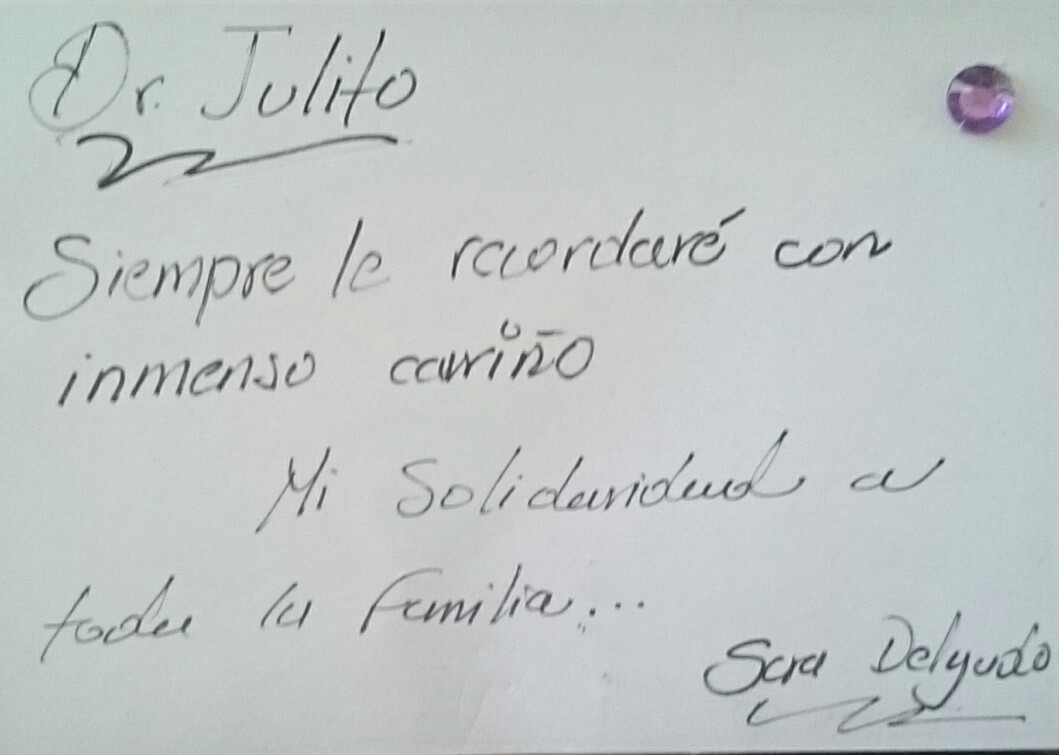 Dr. Julito
Siempre le recordaré con
inmenso cariño
Mi Solidaridad a
toda la familia...
Sara Delgado